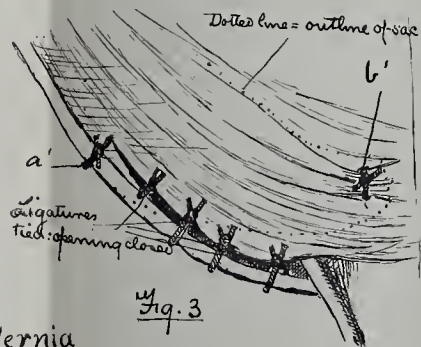 Dotted line = outline of sac
b'
a'
Ligatures
tied: opening closed
Fig. 3
ernia